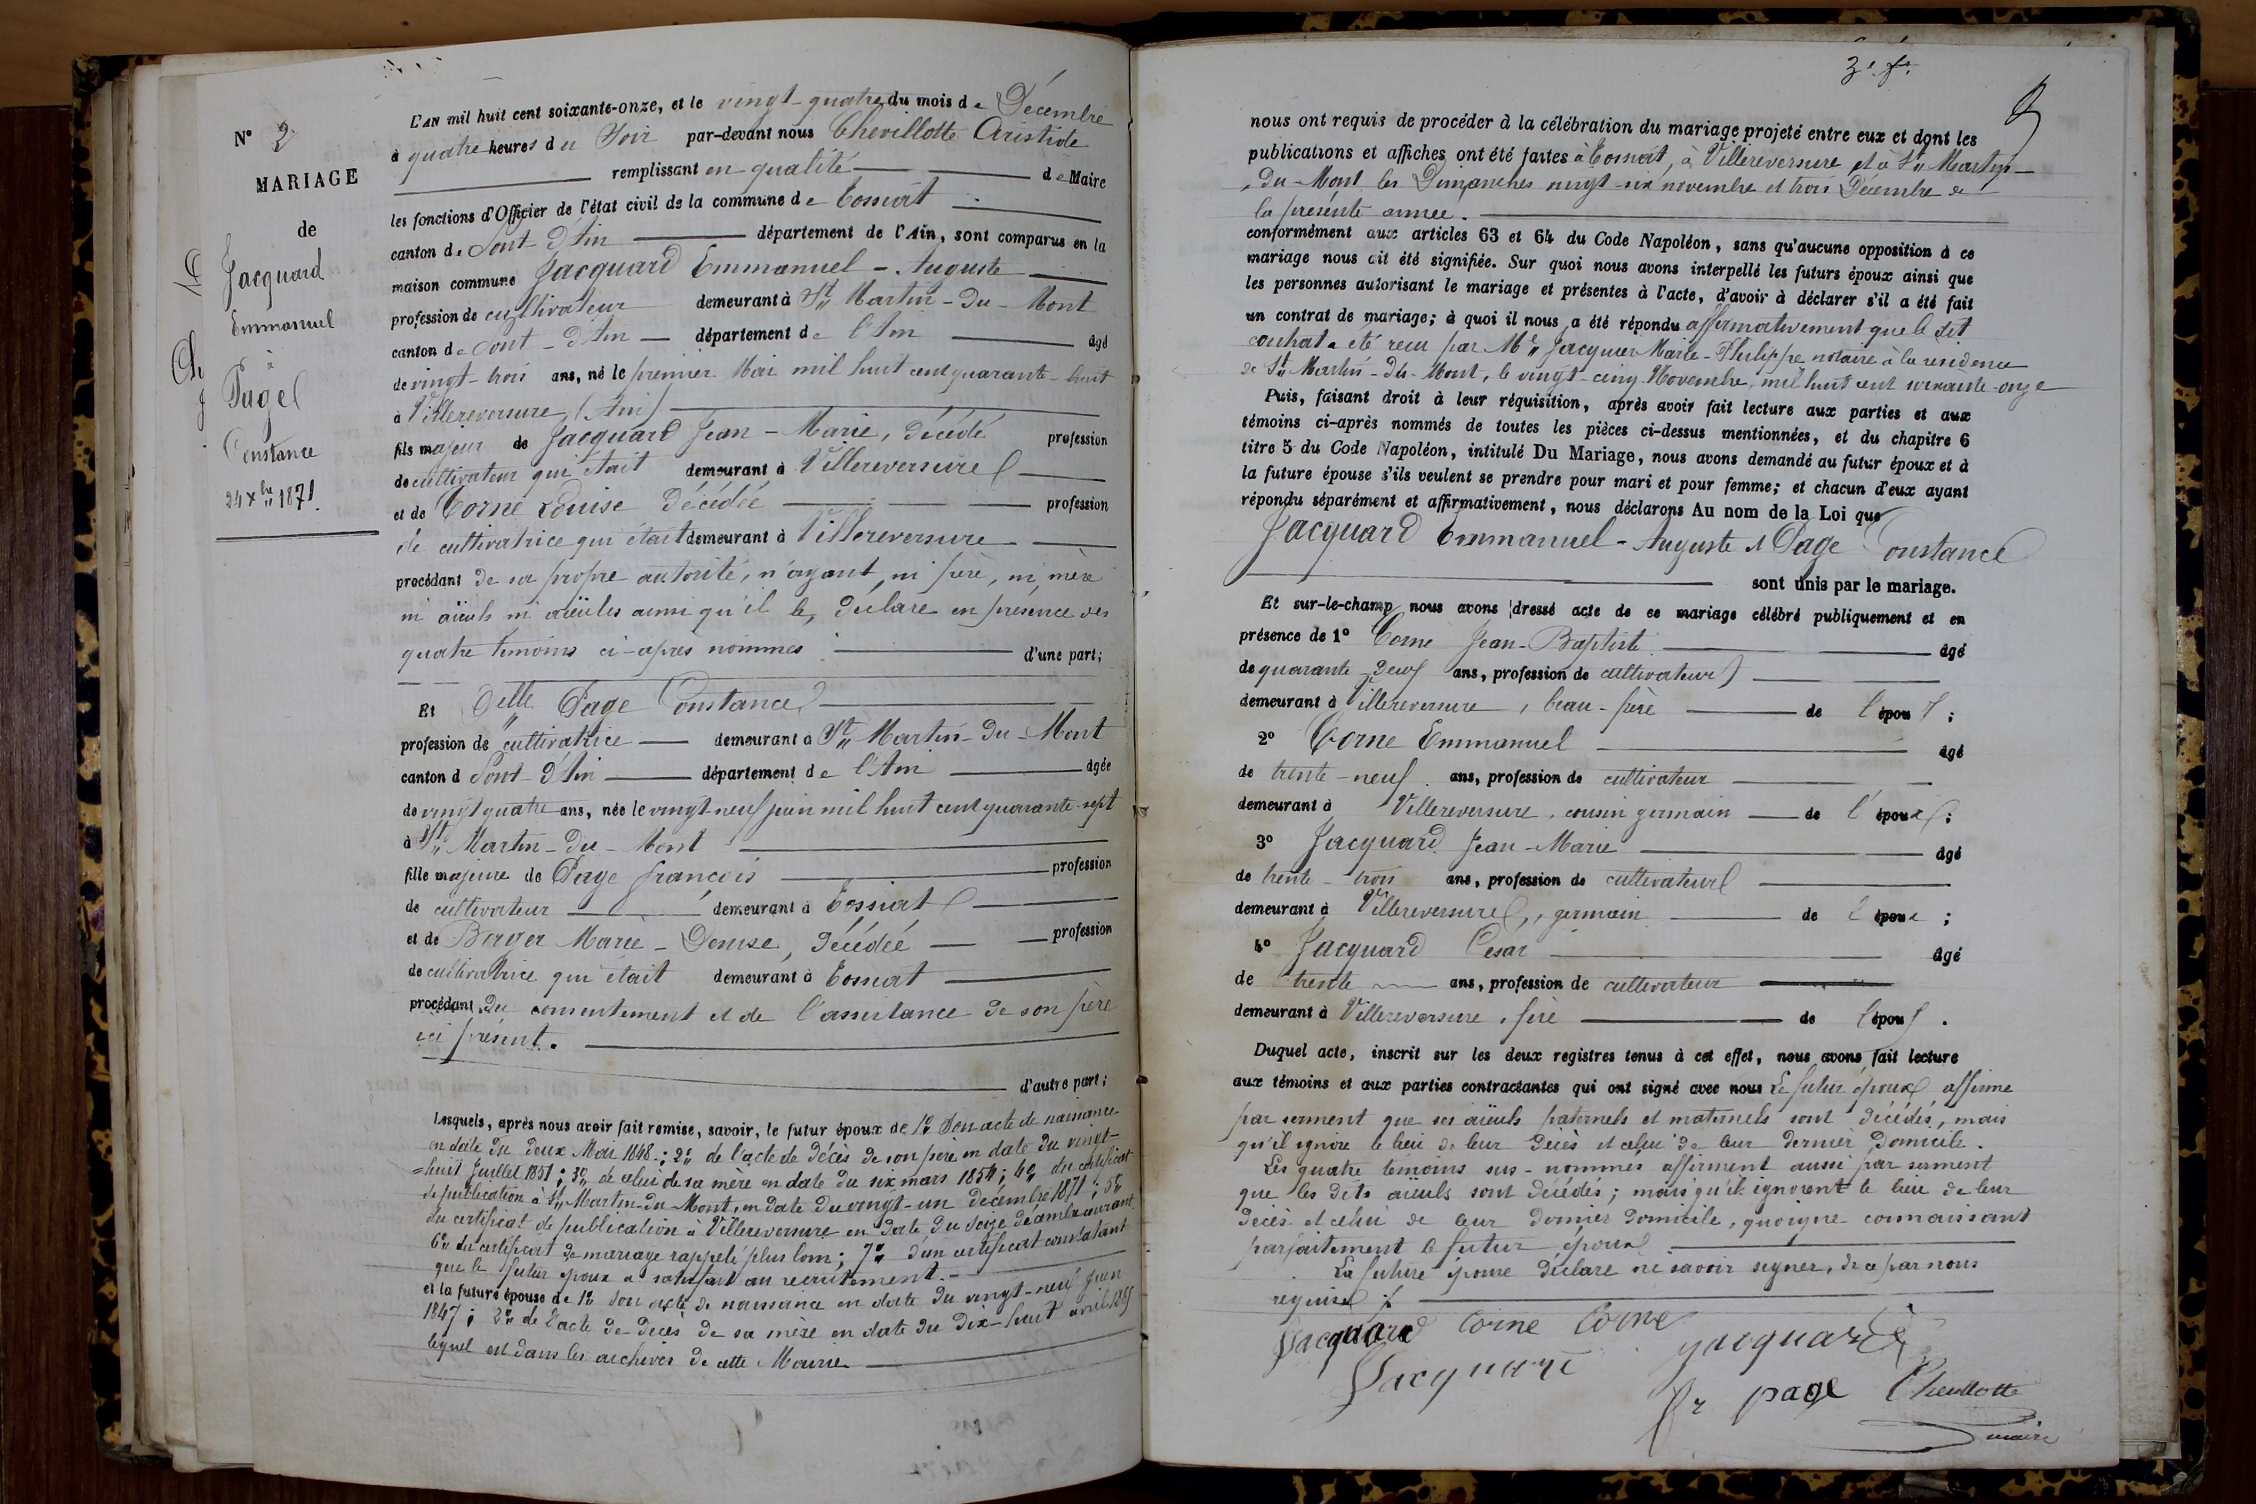 N° 2
MARIAGE
de
Jacquard
Emmanuel
à
Page
Constance
24 Xbre 1871.
L'AN mil huit cent soixante-onze, et le vingt-quatre du mois de Décembre
à quatre heures du Soir par-devant nous Chevillotte Aristide
remplissant en qualité de Maire
les fonctions d'Officier de l'état civil de la commune de Tossiat
canton de Pont-d'Ain département de l'Ain, sont comparus en la
maison commune Jacquard Emmanuel-Auguste
profession de cultivateur demeurant à St Martin-du-Mont
canton de Pont-d'Ain département de l'Ain âgé
de vingt-trois ans, né le premier Mai mil huit cent quarante-huit
à Villereversure (Ain)
fils majeur de Jacquard Jean-Marie, décédé profession
de cultivateur qui était demeurant à Villereversure
et de Corne Louise Décédée profession
de cultivatrice qui était demeurant à Villereversure
procédant de sa propre autorité, n'ayant ni père, ni mère
ni aïeuls ni aïeules ainsi qu'il le déclare en présence des
quatre témoins ci-après nommés d'une part;
Et Delle Page Constance
profession de cultivatrice demeurant à St Martin-du-Mont
canton d Pont-d'Ain département de l'Ain âgée
de vingt quatre ans, née le vingt-neuf juin mil huit cent quarante-sept
à St Martin-du-Mont
fille majeure de Page françois profession
de cultivateur demeurant à Tossiat
et de Berger Marie-Denise, décédée profession
de cultivatrice qui était demeurant à Tossiat
procédant du consentement et de l'assistance de son père
ici présent.
d'autre part;
Lesquels, après nous avoir fait remise, savoir, le futur époux de 1° Son acte de naissance
en date du deux Mai 1848; 2° de l'acte de décès de son père en date du vingt-
=huit Juillet 1851; 3° de celui de sa mère en date du six mars 1854; 4° du certificat
de publication à St Martin-du-Mont, en date du vingt-un décembre 1871; 5°
du certificat de publication à Villereversure en date du seize décembre courant
6° du certificat de mariage rappelé plus loin; 7° d'un certificat constatant
que le futur époux a satisfait au recrutement.
et la future épouse de 1° Son acte de naissance en date du vingt-neuf juin
1847; 2° de l'acte de décès de sa mère en date du dix-huit avril
lequel est dans les archives de cette Mairie
nous ont requis de procéder à la célébration du mariage projeté entre eux et dont les
publications et affiches ont été faites à Tossiat, à Villereversure et à St Martin-
du-Mont les Dimanches vingt-six novembre et trois Décembre de
la présente année.
conformément aux articles 63 et 64 du Code Napoléon, sans qu'aucune opposition à ce
mariage nous ait été signifiée. Sur quoi nous avons interpellé les futurs époux ainsi que
les personnes autorisant le mariage et présentes à l'acte, d'avoir à déclarer s'il a été fait
un contrat de mariage; à quoi il nous a été répondu affirmativement que le dit
contrat a été reçu par Me Jacquier Marie-Philippe notaire à la résidence
de St Martin-du-Mont, le vingt-cinq Novembre, mil huit cent soixante-onze
Puis, faisant droit à leur réquisition, après avoir fait lecture aux parties et aux
témoins ci-après nommés de toutes les pièces ci-dessus mentionnées, et du chapitre 6
titre 5 du Code Napoléon, intitulé Du Mariage, nous avons demandé au futur époux et à
la future épouse s'ils veulent se prendre pour mari et pour femme; et chacun d'eux ayant
répondu séparément et affirmativement, nous déclarons Au nom de la Loi que
Jacquard Emmanuel-Auguste et Page Constance
sont unis par le mariage.
Et sur-le-champ nous avons dressé acte de ce mariage célébré publiquement et en
présence de 1° Corne Jean-Baptiste âgé
de quarante neuf ans, profession de cultivateur
demeurant à Villereversure, beau-père de l'époux;
2° Corne Emmanuel âgé
de trente-neuf ans, profession de cultivateur
demeurant à Villereversure, cousin germain de l'époux;
3° Jacquard Jean-Marie âgé
de trente-trois ans, profession de cultivateur
demeurant à Villereversure, germain de l'époux;
4° Jacquard César âgé
de trente ans, profession de cultivateur
demeurant à Villereversure, frère de l'époux.
Duquel acte, inscrit sur les deux registres tenus à cet effet, nous avons fait lecture
aux témoins et aux parties contractantes qui ont signé avec nous Le futur époux affirme
par serment que ses aïeuls paternels et maternels sont décédés, mais
qu'il ignore le lieu de leur décès et celui de leur dernier domicile.
Les quatre témoins sus-nommés affirment aussi par serment
que les dits aïeuls sont décédés; mais qu'ils ignorent le lieu de leur
décès et celui de leur dernier domicile, quoique connaissant
parfaitement le futur époux
La future épouse déclare ne savoir signer, de ce par nous
requise
Jacquard Corne Corne Jacquard
Jacquard
Fr page Chevillotte
maire